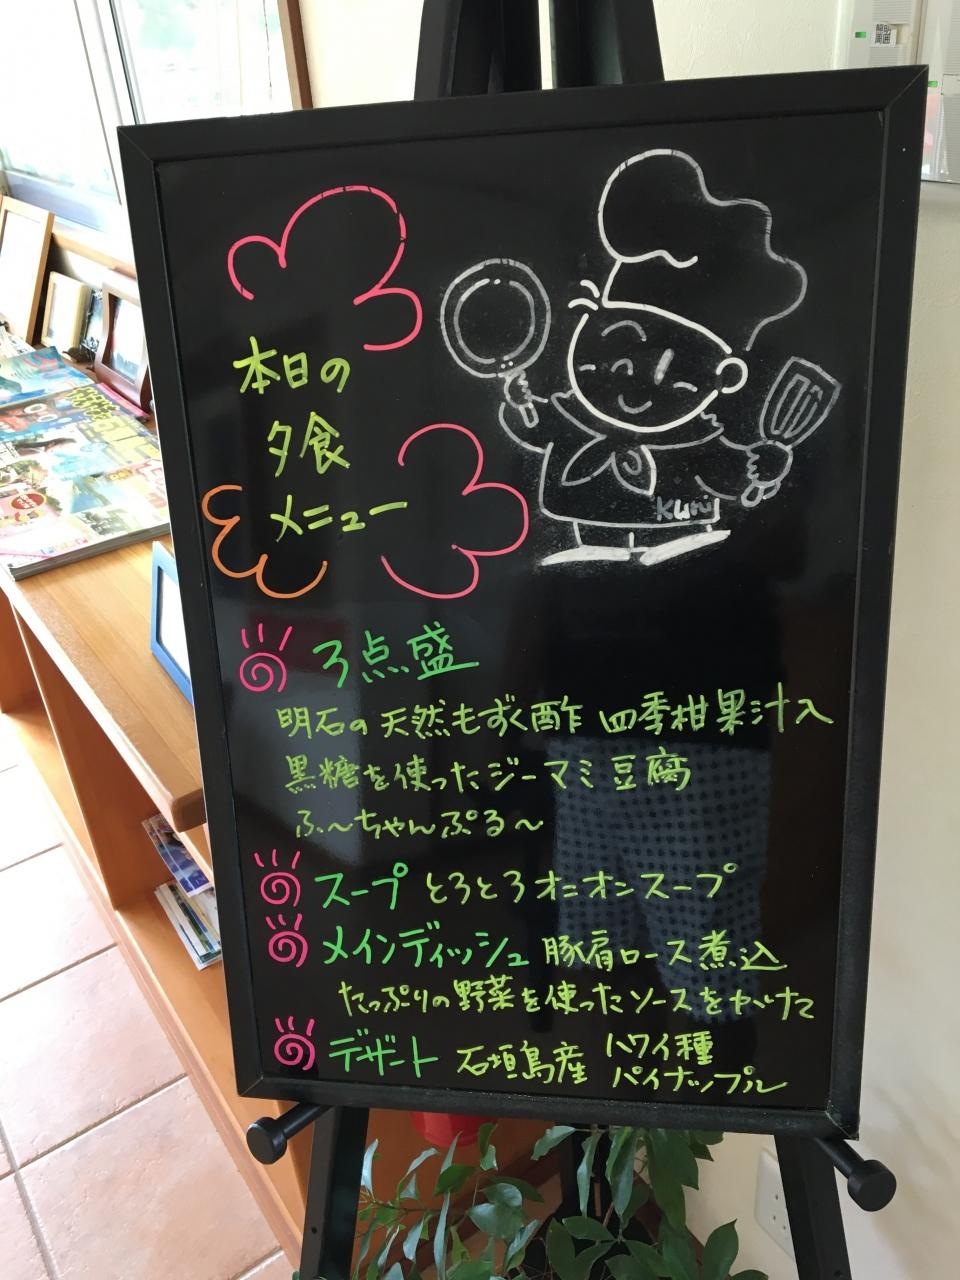 本日の
夕食
メニュー
Kuni
3点盛
明石の天然もずく酢 四季柑果汁入
黒糖を使ったジーマミ豆腐
ふ〜ちゃんぷる〜
スープ とろとろオニオンスープ
メインディッシュ 豚肩ロース煮込
たっぷりの野菜を使ったソースをかけて
デザート 石垣島産 ハワイ種
パイナップル